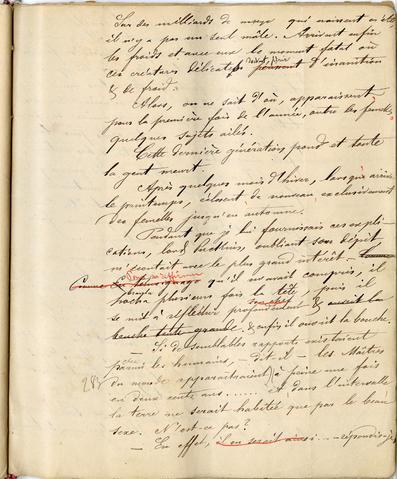 Sur des milliards de ... qui naissent en été,
il n'y a pas un seul mâle. Arrivent enfin
les froids et avec eux le moment fatal où
ces créatures délicates doivent périr d'inanition
& de froid.
Alors, on ne sait d'où, apparaissent
pour la première fois de l'année, outre les femelles,
quelques sujets ailés.
Cette dernière génération pond et toute
la gent meurt.
Après quelques mois d'hiver, lorsqu'arrive
le printemps, éclosent de nouveau exclusivement
des femelles jusqu'en automne.
Pendant que je lui fournissais ces expli-
cations, lord, oubliant son dépit,
m'écoutait avec le plus grand intérêt
qu'il m'avait compris, il
hocha plusieurs fois la tête, puis il
se mit à réfléchir profondément & avait la
bouche toute grande. & enfin il ouvrit la bouche.
— Si de semblables rapports existaient
parmi les humains, — dit-il — les Maîtres
du monde apparaîtraient à peine une fois
en deux cents ans...... et dans l'intervalle
la terre ne serait habitée que par le beau
sexe. N'est-ce pas?
— En effet, il en serait ainsi... — répondis-je